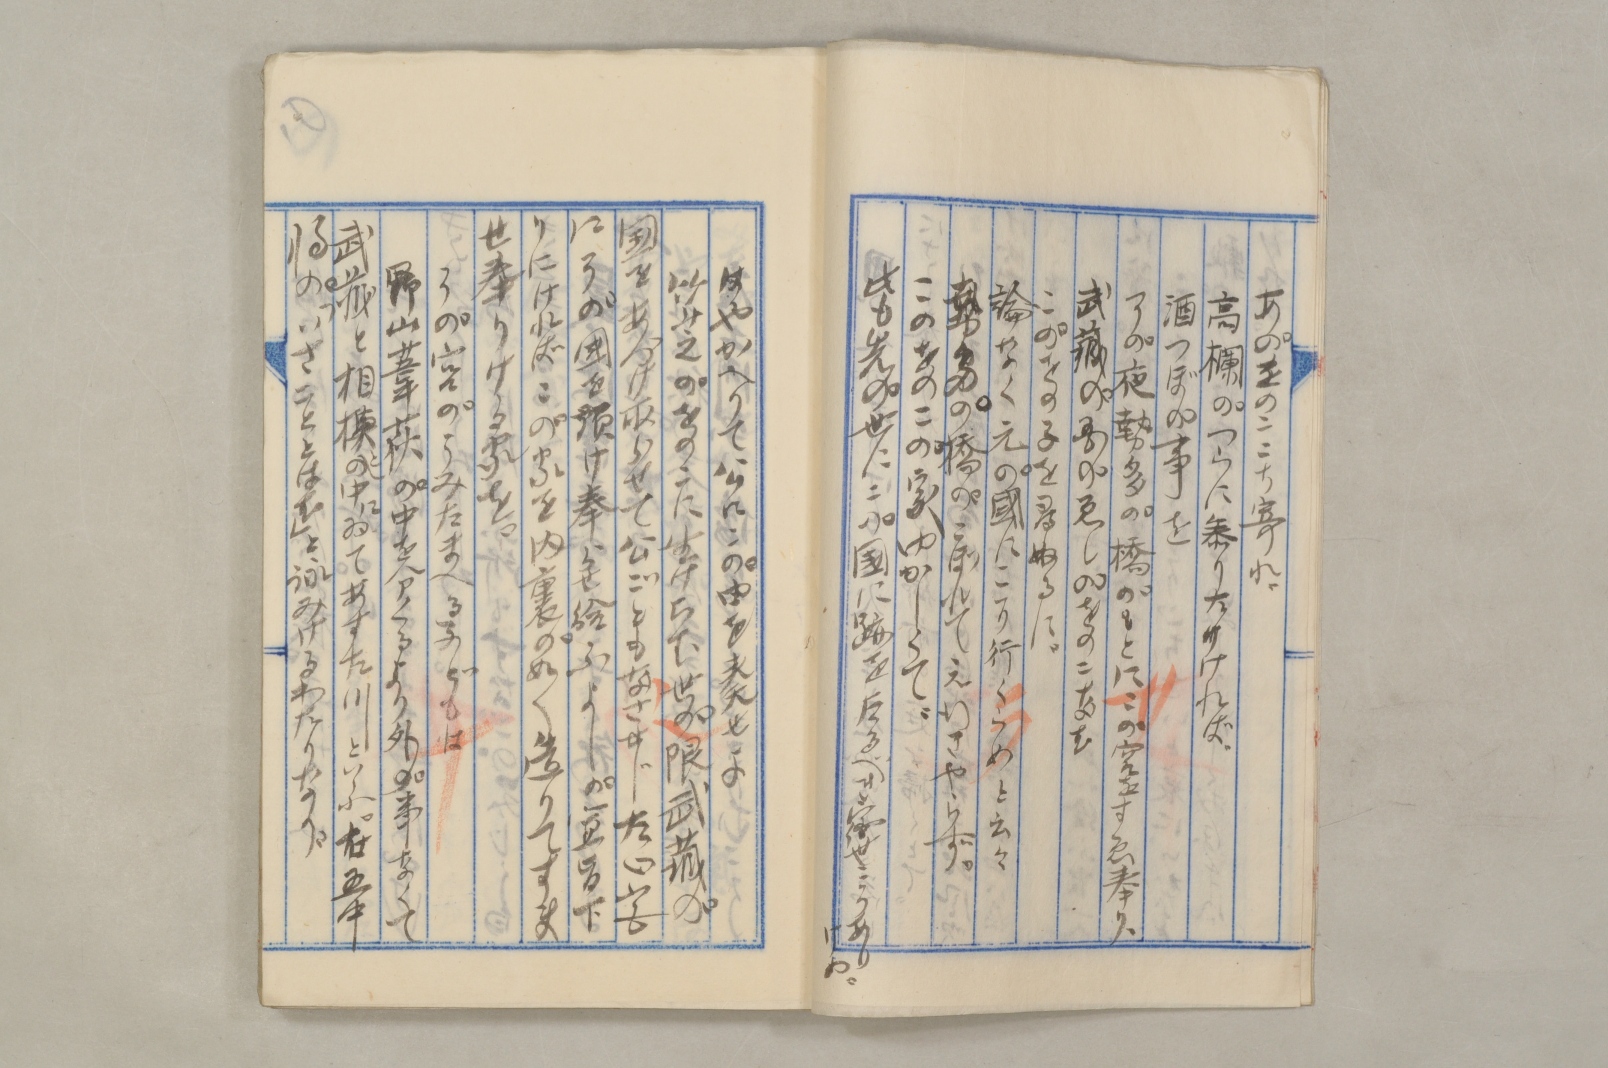 あのをのここち寄れ、
高欄のつらに参りたりければ、
酒つぼの事を
その夜勢多の橋のもとにこの宮すゑ奉り、
武蔵の国のゑしのをのこなむ
このをの子を尋ぬるに、
論なく元の國にこそ行くらめと云々
勢多の橋のこぼれてえいきやらず。
このをのこの家ゆかしくて、
此も先の世にこの國に跡を垂るべき宿世こそあり
けめ。
はやかへりて公にこの由を奏せよ
竹芝のをのこに生けらむ世の限武蔵の
国をあづけ取らせて公ごともなさせじたゞ宮
にその國を預け奉らせ給ふよしの宣旨下
りにければこの家を内裏の如く造りてすま
せ奉りける家を
その宮のうみたまへる子どもは
野山葦荻の中を分くるより外の事なくて
武蔵と相模の中にゐてあすた川といふ。在五中
将のいざこととはむと詠みけるわたりなり。